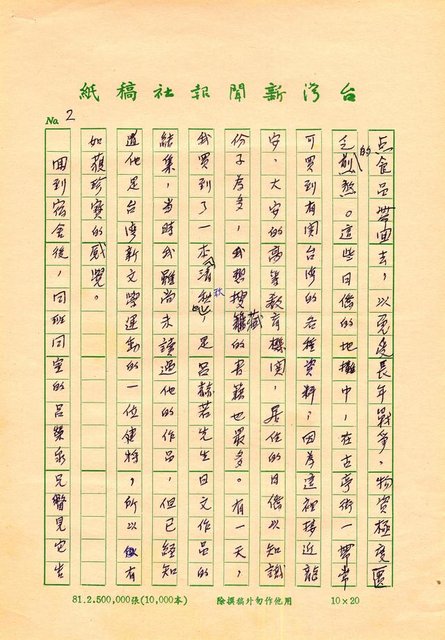 台灣新聞報社稿紙
Na 2
点食品帶回去,以免受長年戰爭,物資極度匱
乏的煎熬。這些日僑的地攤中,在古亭街一帶常
可買到有関台湾的各種資料,因為這裡接近龍
安、大安的高等教育機関,居住的日僑以知識
份子為多,我想搜藏的書籍也最多。有一天,
我買到了一本「清秋」是呂赫若先生日文作品的
結集,當時我雖尚未讀過他的作品,但已經知
道他是台湾新文學運動的一位健將,所以有
如獲珍寶的感覺。
回到宿舍後,同班同室的呂榮泉兄瞥見它告
81.2.500,000張(10,000本) 除撰稿外勿作他用 10×20